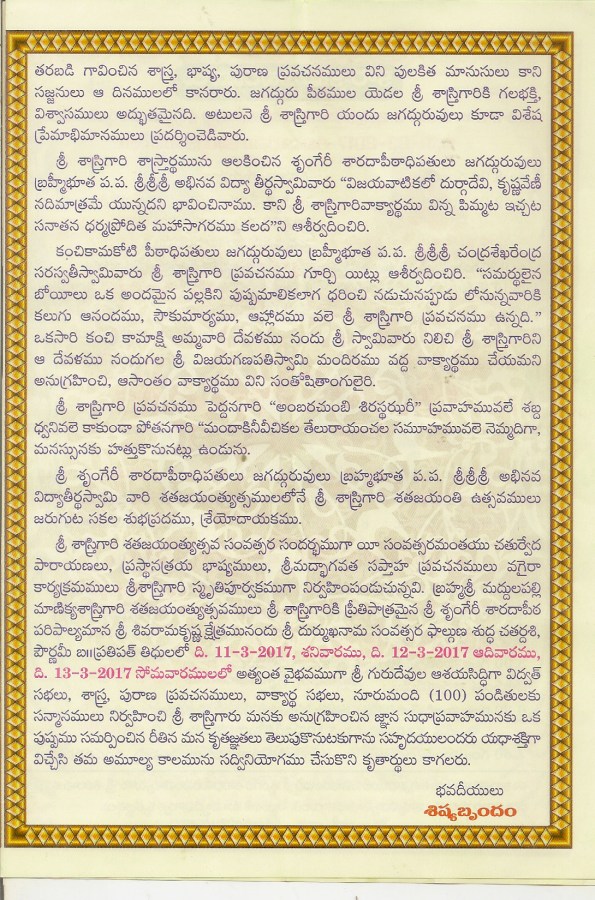 తరబడి గావించిన శాస్త్ర, భాష్య, పురాణ ప్రవచనములు విని పులకిత మానుసులు కాని
సజ్జనులు ఆ దినములలో కానరారు. జగద్గురు పీఠముల యెడల శ్రీ శాస్త్రిగారికి గలభక్తి,
విశ్వాసములు అద్భుతమైనది. అటులనె శ్రీ శాస్త్రిగారి యందు జగద్గురువులు కూడా విశేష
ప్రేమాభిమానములు ప్రదర్శించెడివారు.
శ్రీ శాస్త్రిగారి శాస్త్రార్థమును ఆలకించిన శృంగేరీ శారదాపీఠాధిపతులు జగద్గురువులు
బ్రహ్మీభూత ప.ప. శ్రీశ్రీశ్రీ అభినవ విద్యా తీర్థస్వామివారు “విజయవాటికలో దుర్గాదేవి, కృష్ణవేణీ
నదిమాత్రమే యున్నదని భావించినాము. కాని శ్రీ శాస్త్రిగారివాక్యార్థము విన్న పిమ్మట ఇచ్చట
సనాతన ధర్మప్రోదిత మహాసాగరము కలద”ని ఆశీర్వదించిరి.
కంచికామకోటి పీఠాధిపతులు జగద్గురువులు బ్రహ్మీభూత ప.ప. శ్రీశ్రీశ్రీ చంద్రశేఖరేంద్ర
సరస్వతీస్వామివారు శ్రీ శాస్త్రిగారి ప్రవచనము గూర్చి యిట్లు ఆశీర్వదించిరి. “సమర్థులైన
బోయీలు ఒక అందమైన పల్లకిని పుష్పమాలికలాగ ధరించి నడుచునప్పుడు లోనున్నవారికి
కలుగు ఆనందము, సౌకుమార్యము, ఆహ్లాదము వలె శ్రీ శాస్త్రిగారి ప్రవచనము ఉన్నది.”
ఒకసారి కంచి కామాక్షి అమ్మవారి దేవళము నందు శ్రీ స్వామివారు నిలిచి శ్రీ శాస్త్రిగారిని
ఆ దేవళము నందుగల శ్రీ విజయగణపతిస్వామి మందిరము వద్ద వాక్యార్థము చేయమని
అనుగ్రహించి, ఆసాంతం వాక్యార్థము విని సంతోషితాంగులైరి.
శ్రీ శాస్త్రిగారి ప్రవచనము పెద్దనగారి “అంబరచుంబి శిరస్థఝరీ” ప్రవాహమువలే శబ్ద
ధ్వనివలె కాకుండా పోతనగారి “మందాకినీవీచికల తేలురాయంచల సమూహమువలె నెమ్మదిగా,
మనస్సునకు హత్తుకొనునట్లు ఉండును.
శ్రీ శృంగేరీ శారదాపీఠాధిపతులు జగద్గురువులు బ్రహ్మభూత ప.ప. శ్రీశ్రీశ్రీ అభినవ
విద్యాతీర్థస్వామి వారి శతజయంత్యుత్సములలోనే శ్రీ శాస్త్రిగారి శతజయంతి ఉత్సవములు
జరుగుట సకల శుభప్రదము, శ్రేయోదాయకము.
శ్రీ శాస్త్రిగారి శతజయంత్యుత్సవ సంవత్సర సందర్భముగా యీ సంవత్సరమంతయు చతుర్వేద
పారాయణలు, ప్రస్థానత్రయ భాష్యములు, శ్రీమద్భాగవత సప్తాహ ప్రవచనములు వగైరా
కార్యక్రమములు శ్రీశాస్త్రిగారి స్మృతిపూర్వకముగా నిర్వహింపందుచున్నవి. బ్రహ్మశ్రీ మద్దులపల్లి
మాణిక్యశాస్త్రిగారి శతజయంత్యుత్సవములు శ్రీ శాస్త్రిగారికి ప్రీతిపాత్రమైన శ్రీ శృంగేరీ శారదాపీఠ
పరిపాల్యమాన శ్రీ శివరామకృష్ణ క్షేత్రమునందు శ్రీ దుర్ముఖనామ సంవత్సర ఫాల్గుణ శుద్ధ చతర్దశి,
పౌర్ణమీ బ॥ప్రతిపత్ తిథులలో ది. 11-3-2017, శనివారము, ది. 12-3-2017 ఆదివారము,
ది. 13-3-2017 సోమవారములలో అత్యంత వైభవముగా శ్రీ గురుదేవుల ఆశయసిద్ధిగా విద్వత్
సభలు, శాస్త్ర, పురాణ ప్రవచనములు, వాక్యార్థ సభలు, నూరుమంది (100) పండితులకు
సన్మానములు నిర్వహించి శ్రీ శాస్త్రిగారు మనకు అనుగ్రహించిన జ్ఞాన సుధాప్రవాహమునకు ఒక
పుష్పము సమర్పించిన రీతిన మన కృతజ్ఞతలు తెలుపుకొనుటకుగాను సహృదయులందరు యథాశక్తిగా
విచ్చేసి తమ అమూల్య కాలమును సద్వినియోగము చేసుకొని కృతార్థులు కాగలరు.
భవదీయులు
శిష్యబృందం